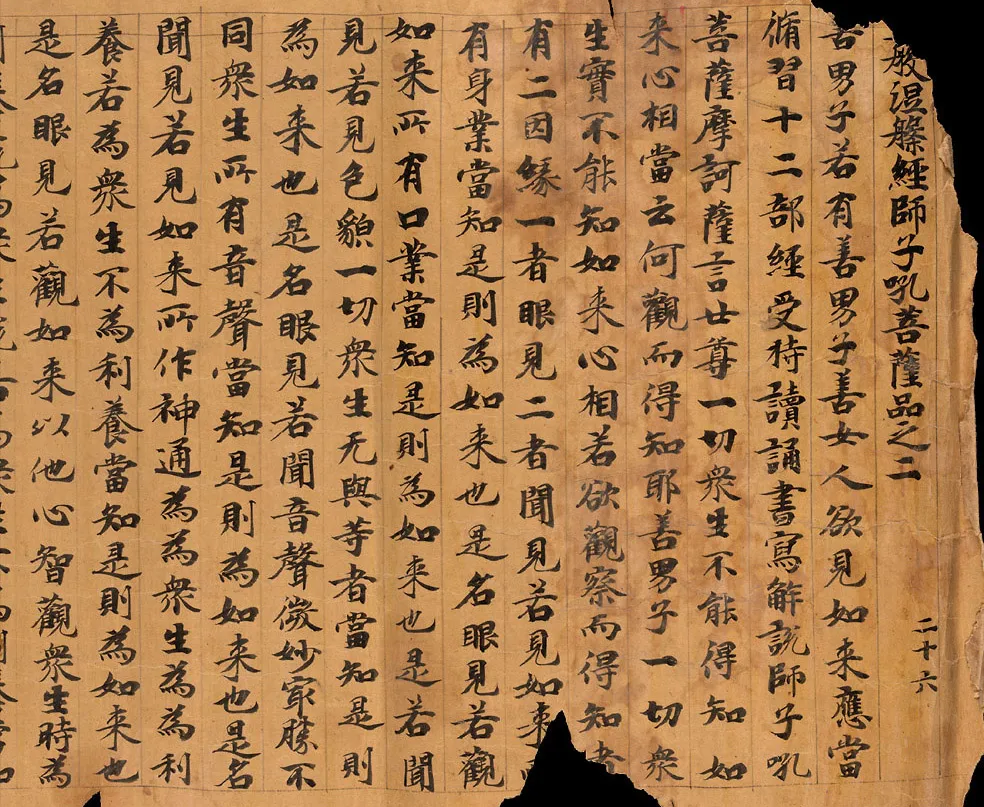 般涅槃經師子吼菩薩品之二 二十六
善男子若有善男子善女人欲見如来應當
脩習十二部經受持讀誦書寫解說師子吼
菩薩摩訶薩言世尊一切衆生不能得知如
来心相當云何觀而得知耶善男子一切衆
生實不能知如来心相若欲觀察而得知者
有二因緣一者眼見二者聞見若見如来
有身業當知是則為如来也是名眼見若觀
如来所有口業當知是則為如来也是若聞
見若見色貌一切衆生无與等者當知是則
為如来也是名眼見若聞音聲微妙冣勝不
同衆生所有音聲當知是則為如来也是名
聞見若見如来所作神通為為衆生為為利
養若為衆生不為利養當知是則為如来也
是名眼見若觀如来以他心智觀衆生時為